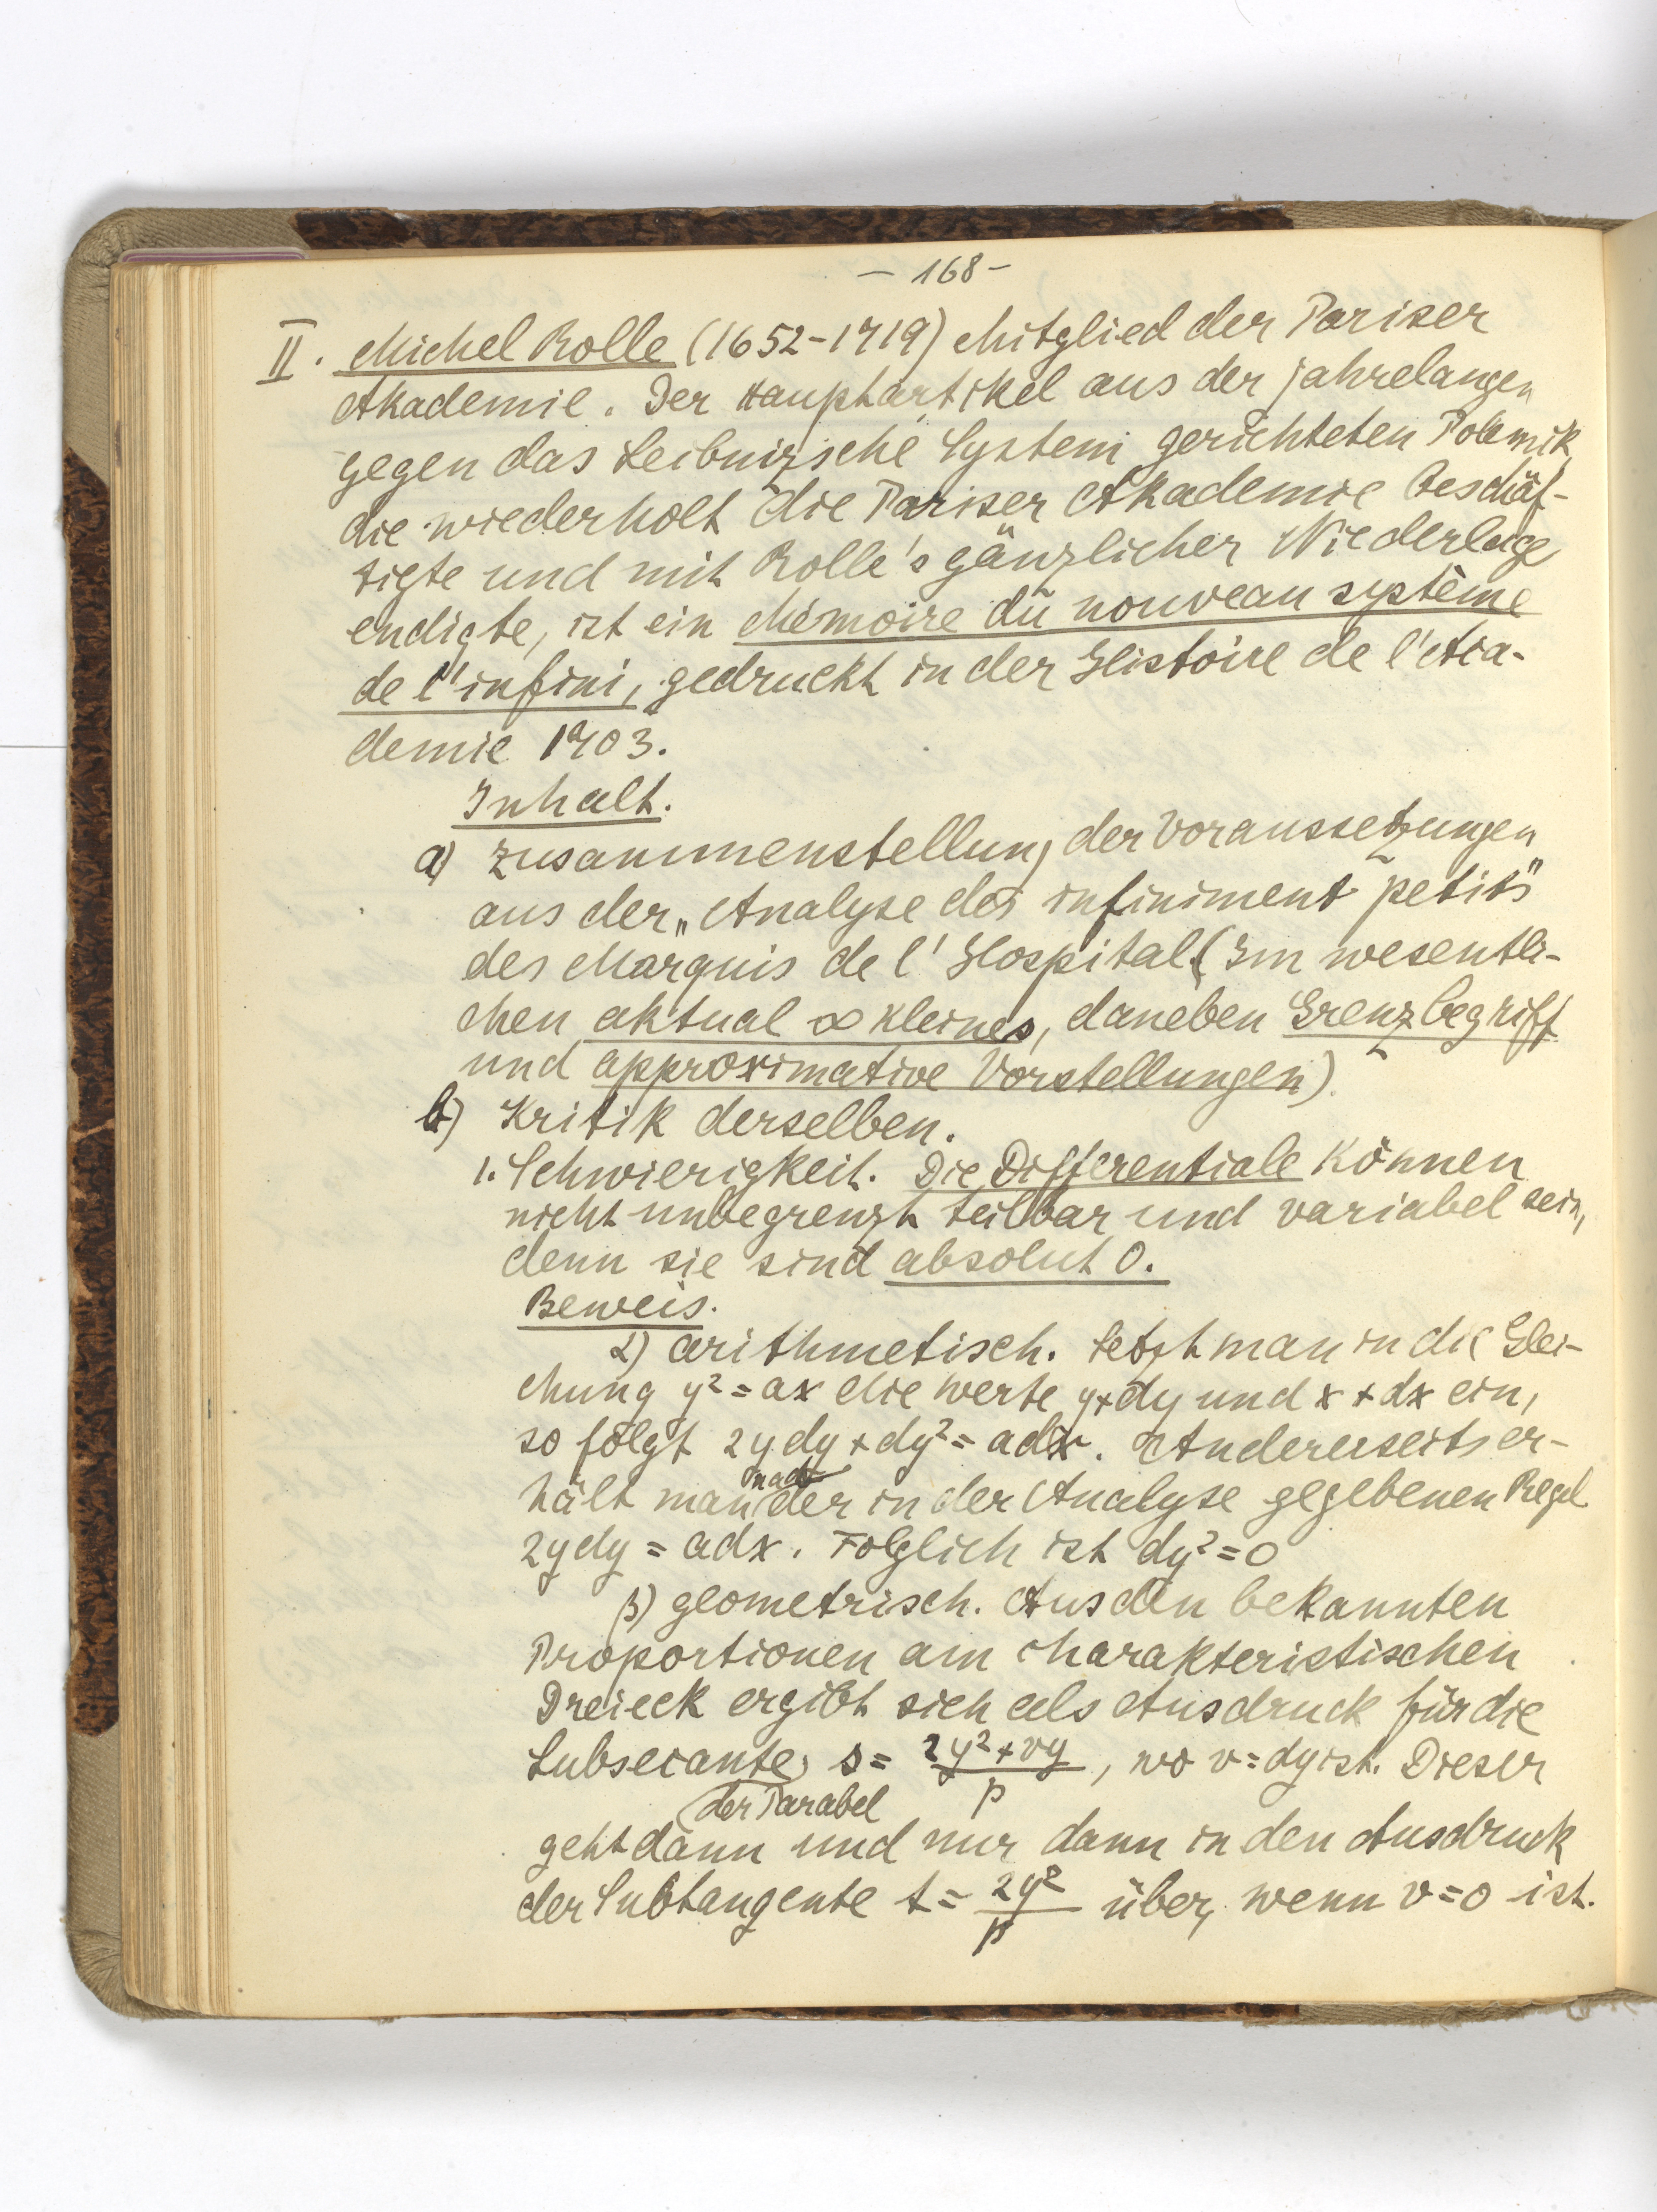 – 168 –
II. Michel Rolle (1652–1719) Mitglied der Pariser
Akademie. Der Hauptartikel aus der jahrelangen
gegen das Leibnizsche System gerichteten Polemik,
die wiederholt die Pariser Akademie beschäf-
tigte und mit Rolle's gänzlicher Niederlage
endigte, ist ein Mémoire du nouveau système
de l'infini, gedruckt in der Histoire de l'Aca-
demie 1703.
Inhalt.
a) Zusammenstellung der Voraussetzungen
aus der „Analyse des infiniment petits"
des Marquis de l'Hospital (Im wesentli-
chen aktual ∞ kleines, daneben Grenzbegriff
und approximative Vorstellungen).
b) Kritik derselben.
1. Schwierigkeit. Die Differentiale können
nicht unbegrenzt teilbar und variabel sein,
denn sie sind absolut 0.
Beweis.
α) arithmetisch. Setzt man in die Glei-
chung y² = ax die Werte y+dy und x+dx ein,
so folgt 2ydy + dy² = adx. Andererseits er-
hält man nach der in der Analyse gegebenen Regel
2ydy = adx. Folglich ist dy² = 0
β) geometrisch. Aus den bekannten
Proportionen am charakteristischen
Dreieck ergibt sich als Ausdruck für die
Subsecante der Parabel s = (2y² + vy)/p, wo v = dy ist. Dieser
geht dann und nur dann in den Ausdruck
der Subtangente t = 2y²/p über, wenn v = 0 ist.